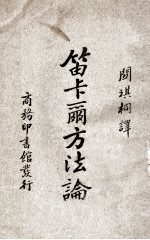 關琪桐譯
笛卡爾方法論
商務印書館發行